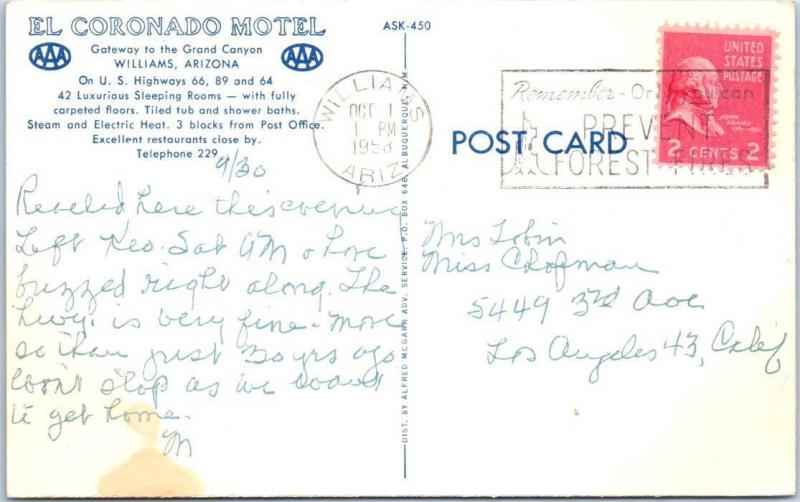 EL CORONADO MOTEL
AAA
AAA
Gateway to the Grand Canyon
WILLIAMS, ARIZONA
On U. S. Highways 66, 89 and 64
42 Luxurious Sleeping Rooms — with fully
carpeted floors. Tiled tub and shower baths.
Steam and Electric Heat. 3 blocks from Post Office.
Excellent restaurants close by.
Telephone 229
9/30
here this evening
Left Keo. Sat AM & have
buzzed right along. The
hwy. is very fine - more
so than just 20 yrs ago
Won't stop as we want
to get home.
M
ASK-450
DIST. BY ALFRED MCGARR ADV. SERVICE, P.O. BOX 646 ALBUQUERQUE, N.M.
WILLIAMS
OCT 1
1 PM
1953
ARIZ
POST CARD
Remember - Only you can
PREVENT
FOREST FIRES
UNITED
STATES
POSTAGE
JOHN
ADAMS
2 CENTS 2
Mrs Tobin
Miss Chapman
5449 3rd Ave
Los Angeles 43, Calif